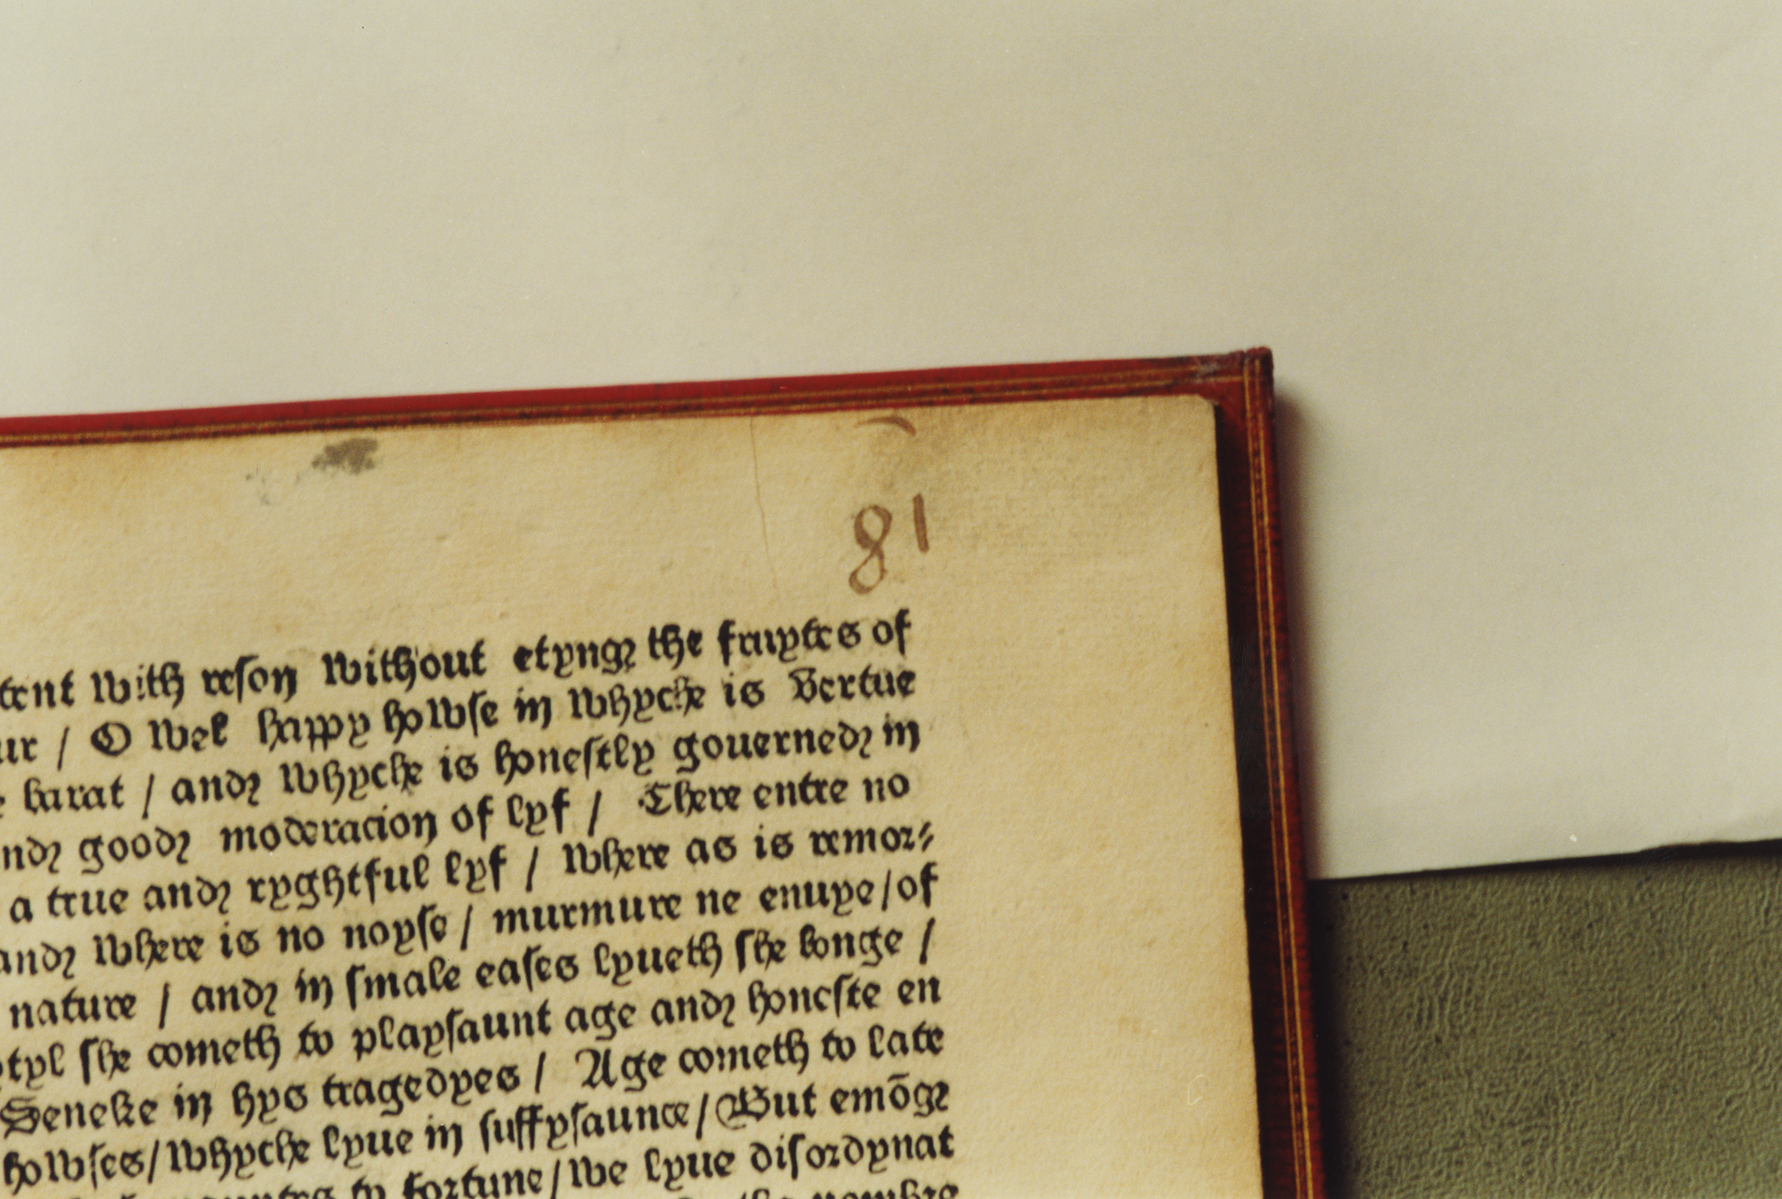 81
tent with reson without etyng the fruytes of
ur / O wel happy howse in whyche is Vertue
barat / and whyche is honestly gouerned in
nd good moderacion of lyf / There entre no
a true and ryghtful lyf / where as is remor⸗
and where is no noyse / murmure ne enuye / of
nature / and in smale eases lyueth she longe /
tyl she cometh to playsaunt age and honeste en
Seneke in hys tragedyes / Age cometh to late
howses / whyche lyue in suffysaunce / But emõg
to fortune / we lyue disordynat
the nombre